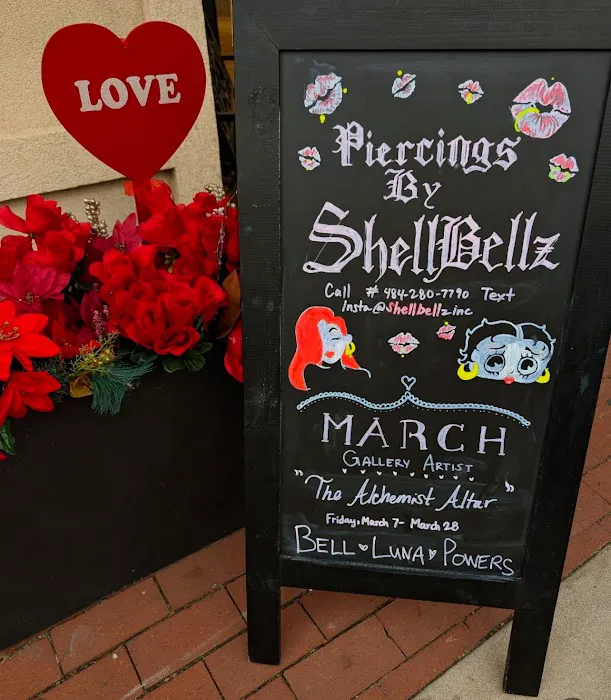 LOVE
Piercings
By
ShellBellz
Call # 484-280-7790 Text
Insta@Shellbellzinc
MARCH
GALLERY ARTIST
"The Alchemist Altar"
Friday, March 7 - March 28
BELL ♥ LUNA ♥ POWERS